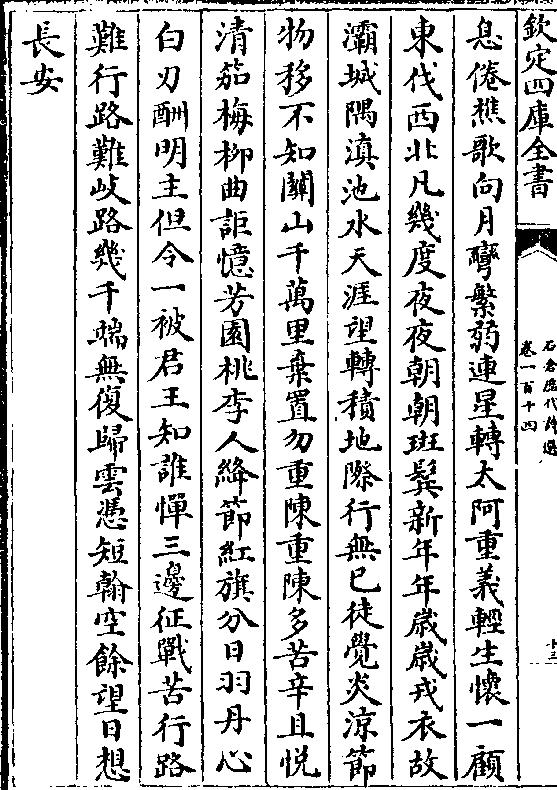 欽定四庫全書
石倉歷代詩選
卷一百十四
十三
息倦樵歌向月彎繁弱連星轉太阿重義輕生懷一顧
東伐西北凡幾度夜夜朝朝斑鬢新年年歲歲戎衣故
灞城隅滇池水天涯望轉積地際行無已徒覺炎涼節
物移不知關山千萬里棄置勿重陳重陳多苦辛且悦
清笳梅柳曲詎憶芳園桃李人絳節紅旗分日羽丹心
白刃酬明主但令一被君王知誰憚三邊征戰苦行路
難行路難岐路幾千端無復歸雲憑短翰空餘望日想
長安